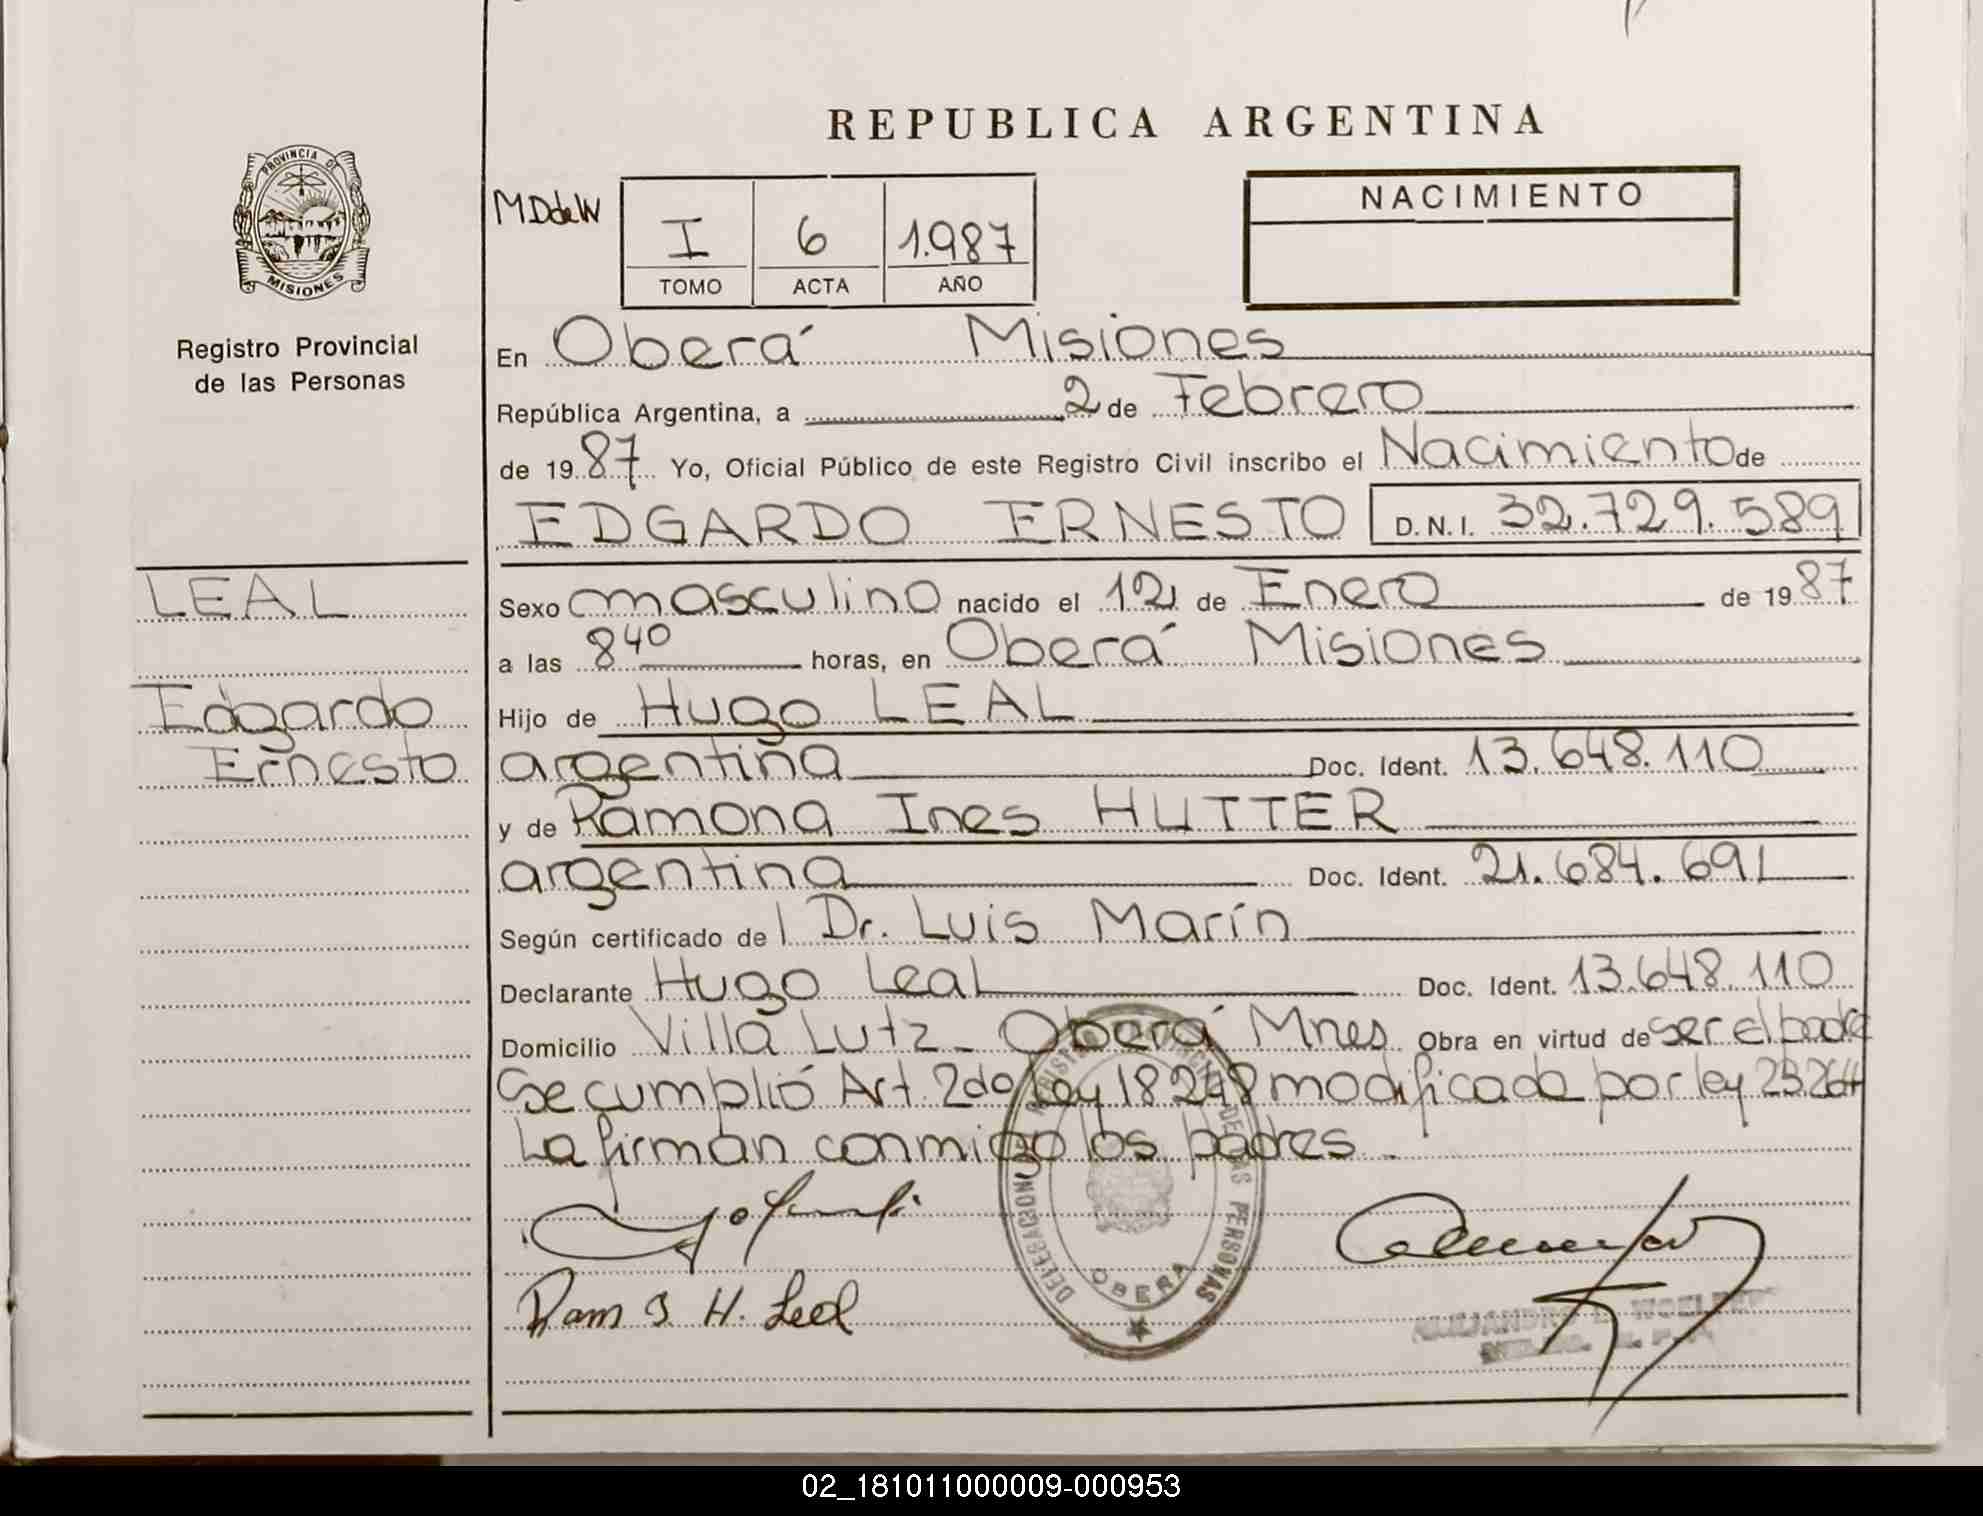 REPUBLICA ARGENTINA
PROVINCIA DE
MISIONES
Registro Provincial
de las Personas
MDdeW
I 6 1.987
TOMO ACTA AÑO
NACIMIENTO
En Oberá Misiones
República Argentina, a 2 de Febrero
de 1987 Yo, Oficial Público de este Registro Civil inscribo el Nacimiento de
EDGARDO ERNESTO D.N.I. 32.729.589
LEAL
Edgardo
Ernesto
Sexo masculino nacido el 12 de Enero de 1987
a las 8 40 horas, en Oberá Misiones
Hijo de Hugo LEAL
argentina Doc. Ident. 13.648.110
y de Ramona Ines HUTTER
argentina Doc. Ident. 21.684.691
Según certificado del Dr. Luis Marín
Declarante Hugo Leal Doc. Ident. 13.648.110
Domicilio Villa Lutz - Oberá Mnes Obra en virtud de ser el padre
Se cumplió Art. 2do ley 18248 modificada por ley 23.264
La firman conmigo los padres.
Ram I. H. Leal
DELEGACION DE LAS PERSONAS
OBERA
02_181011000009-000953